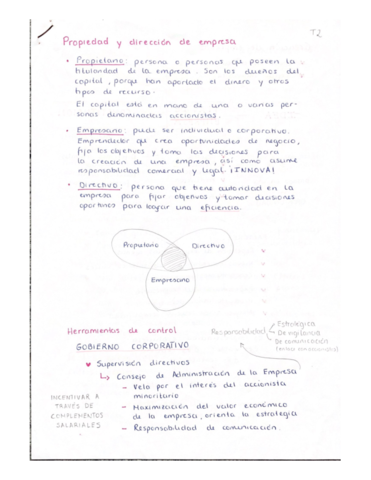 T2
Propiedad y dirección de empresa
• Propietario: persona o personas que poseen la
titularidad de la empresa. Son los dueños del
capital, porque han aportado el dinero y otros
tipos de recurso.
El capital está en mano de una o varias per-
sonas denominadas accionistas.
• Empresario: puede ser individual o corporativo.
Emprendedor que crea oportunidades de negocio,
fija los objetivos y toma las decisiones para
la creación de una empresa, así como asume
responsabilidad comercial y legal. ¡INNOVA!
• Directivo: persona que tiene autoridad en la
empresa para fijar objetivos y tomar decisiones
oportunas para lograr una eficiencia.
Propietario
Directivo
Empresario
Herramientas de control
Responsabilidad
Estratégica
De vigilancia
De comunicación
GOBIERNO CORPORATIVO
♥ Supervisión directivos
↳ Consejo de Administración de la Empresa
- Vela por el interés del accionista
minoritario
- Maximización del valor económico
de la empresa, orienta la estrategia
- Responsabilidad de comunicación.
INCENTIVAR A
TRAVÉS DE
COMPLEMENTOS
SALARIALES